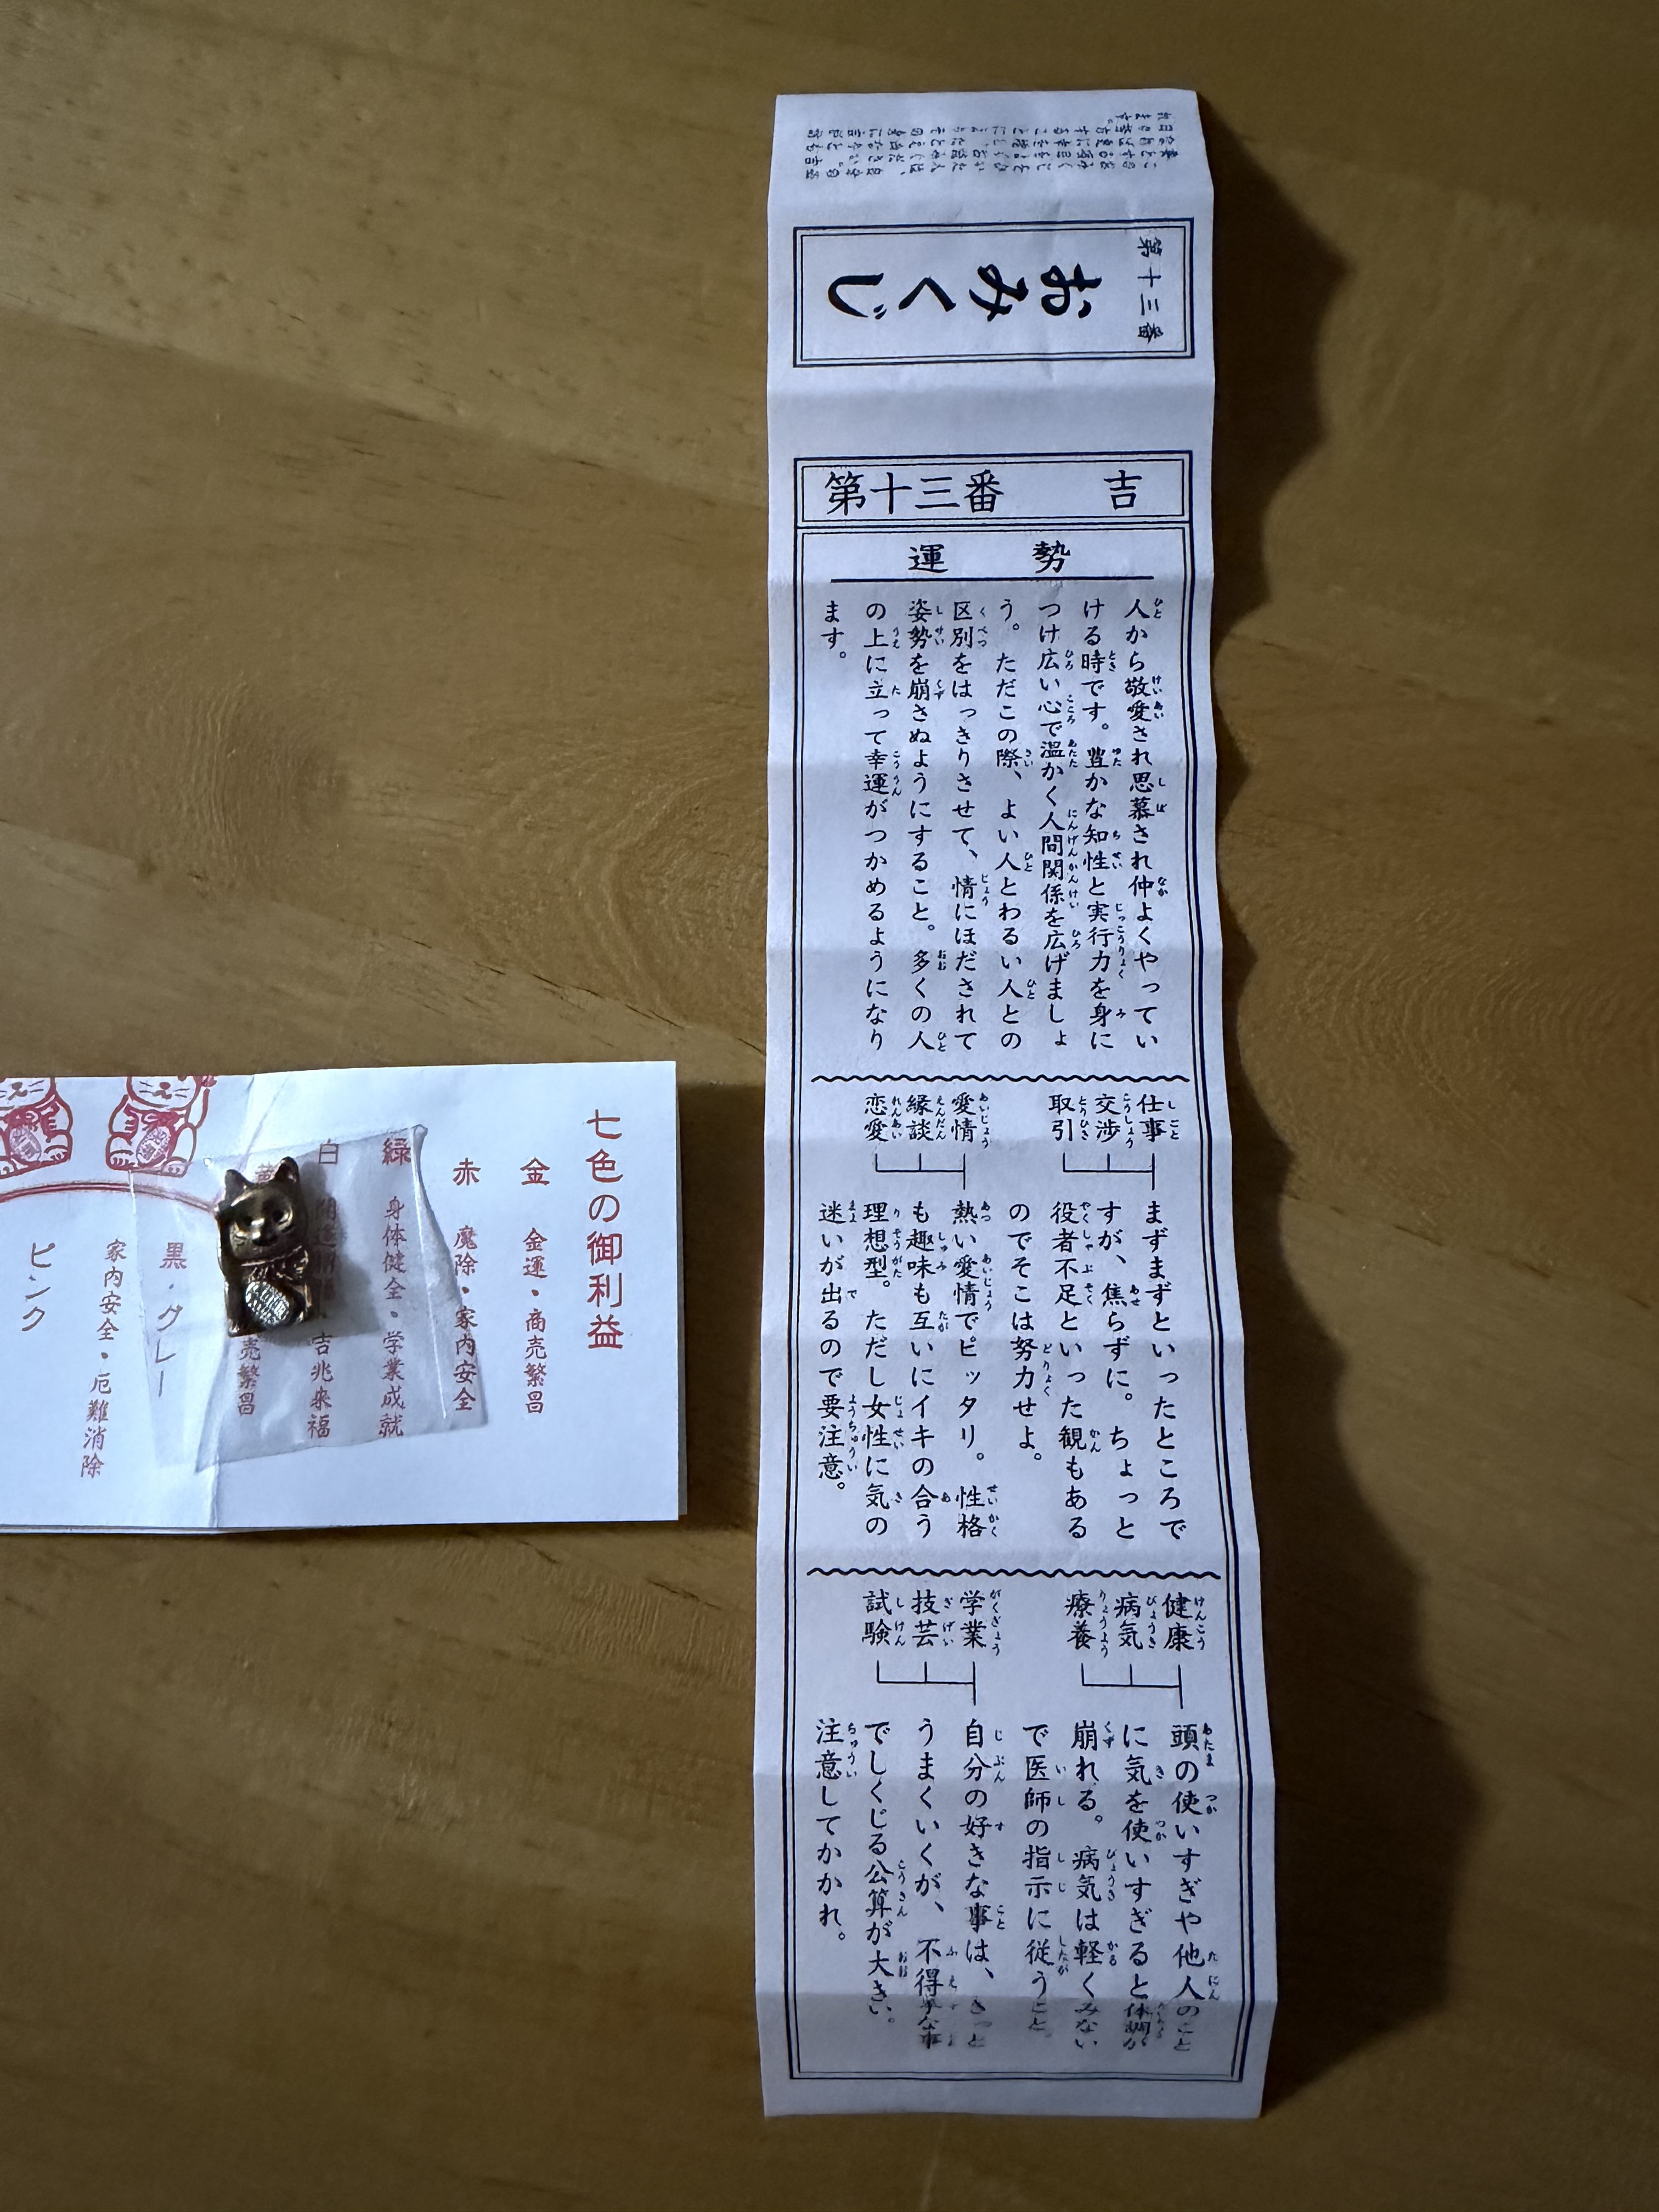 第十三番
おみくじ
第十三番　吉
運勢
人から敬愛され思慕され仲よくやってい
ける時です。豊かな知性と実行力を身に
つけ広い心で温かく人間関係を広げましょ
う。ただこの際、よい人とわるい人との
区別をはっきりさせて、情にほだされて
姿勢を崩さぬようにすること。多くの人
の上に立って幸運がつかめるようになり
ます。
仕事
交渉
取引
まずまずといったところで
すが、焦らずに。ちょっと
役者不足といった観もある
のでそこは努力せよ。
愛情
縁談
恋愛
熱い愛情でピッタリ。性格
も趣味も互いにイキの合う
理想型。ただし女性に気の
迷いが出るので要注意。
健康
病気
療養
頭の使いすぎや他人のこと
に気を使いすぎると体調が
崩れる。病気は軽くみない
で医師の指示に従うこと。
学業
技芸
試験
自分の好きな事は、きっと
うまくいくが、不得手な事
でしくじる公算が大きい。
注意してかかれ。
七色の御利益
金　金運・商売繁昌
赤　魔除・家内安全
緑　身体健全・学業成就
白　吉兆来福
売繁昌
黒・グレー
家内安全・厄難消除
ピンク